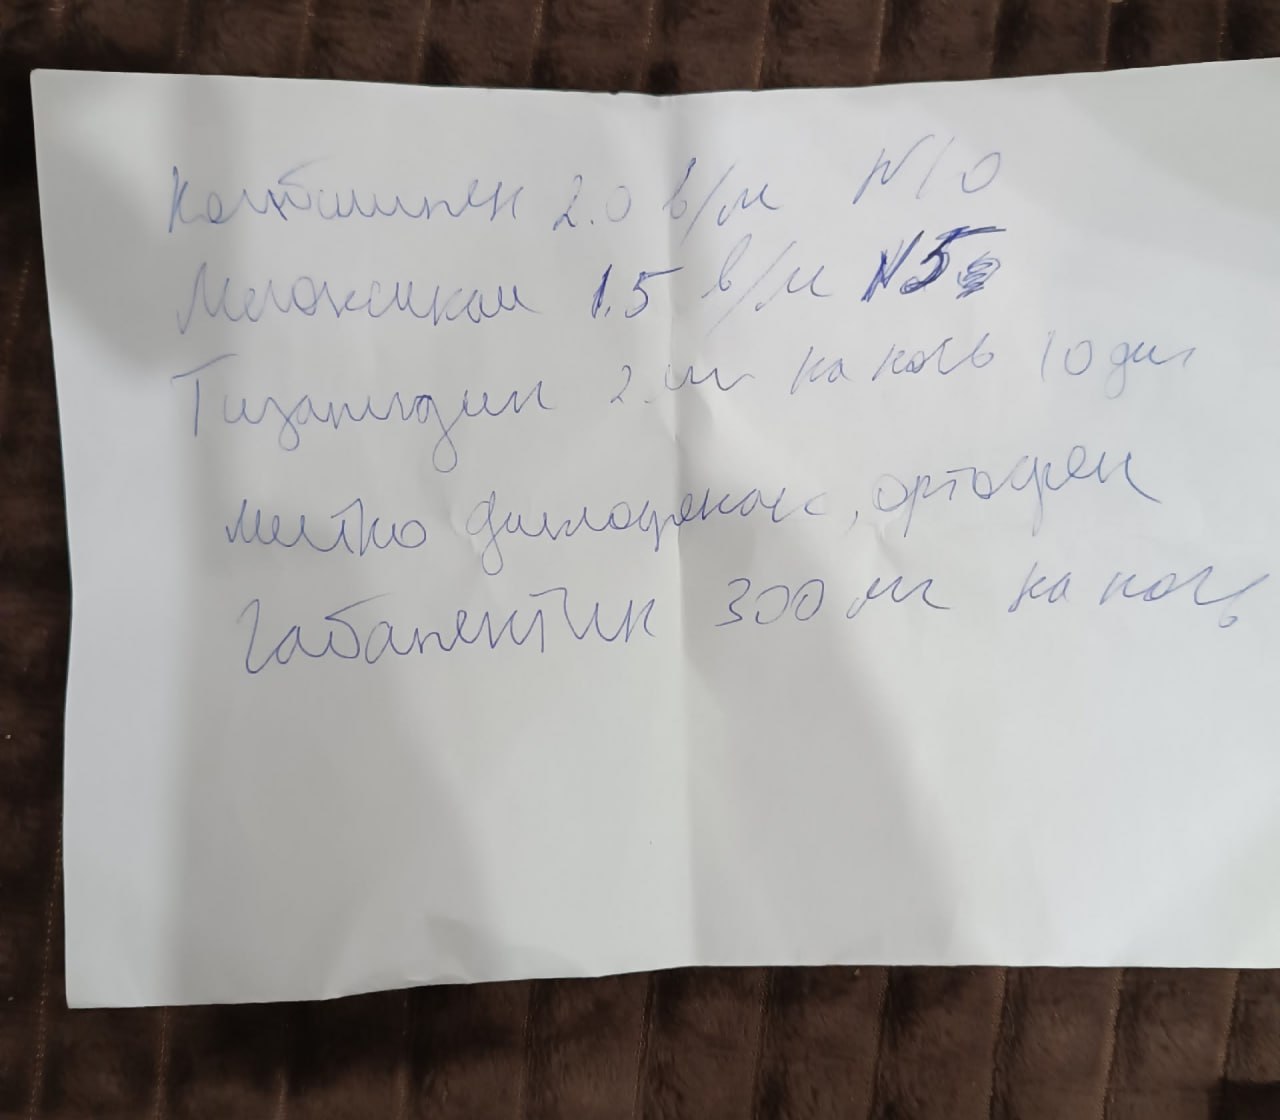 Комбилипен 2.0 в/м N10
Мелоксикам 1.5 в/м N5
Тизанидин 2 мг на ночь 10 дн
местно диклофенак, ортофен
Габапентин 300 мг на ночь